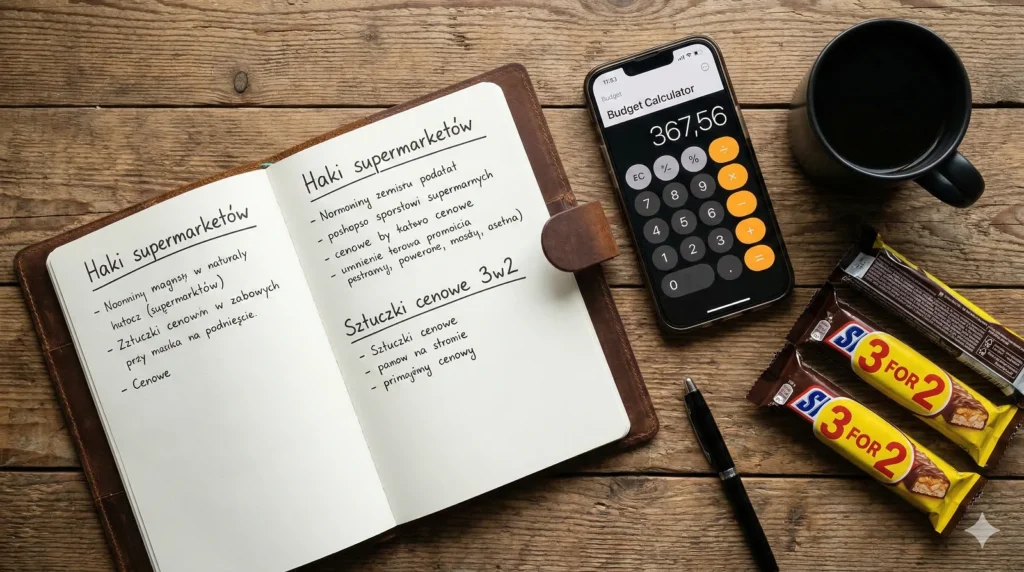 Haki supermarketów
- Noonniny magnsły w naturaly
hutocz (supermarktów)
- Zztuczki cenowin w zabowych
przy masika na podniejscie.
- Cenowe
Haki supermarketów
- Normoniny zemisru podatat
- poshopso sportowi supermarnych
- cenowe by katwo cenowe
- umnienie torowa promoicia
pestramy, powerone, mosty, asetna)
Sztuczki cenowe 3w2
- Sztuczki cenowe
- pamow na stromie
- primajomy cenowy
11:53
Budget
Budget Calculator
367,56
EC +/- % ÷
7 8 9 ×
4 5 6 −
1 2 3 +
0 . =
3 FOR 2
3 FOR 2